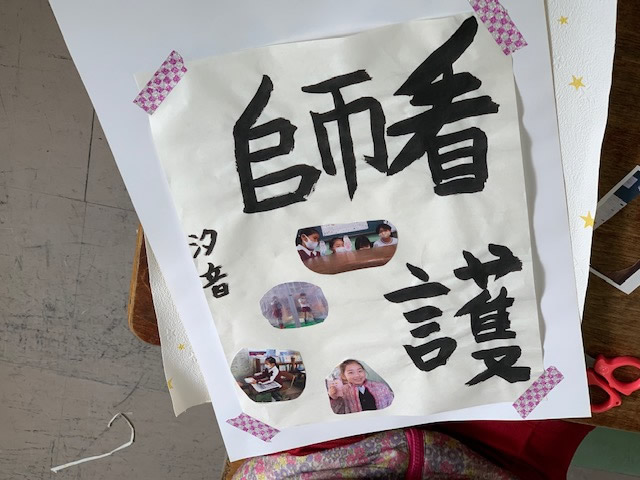 看護
師
汐音